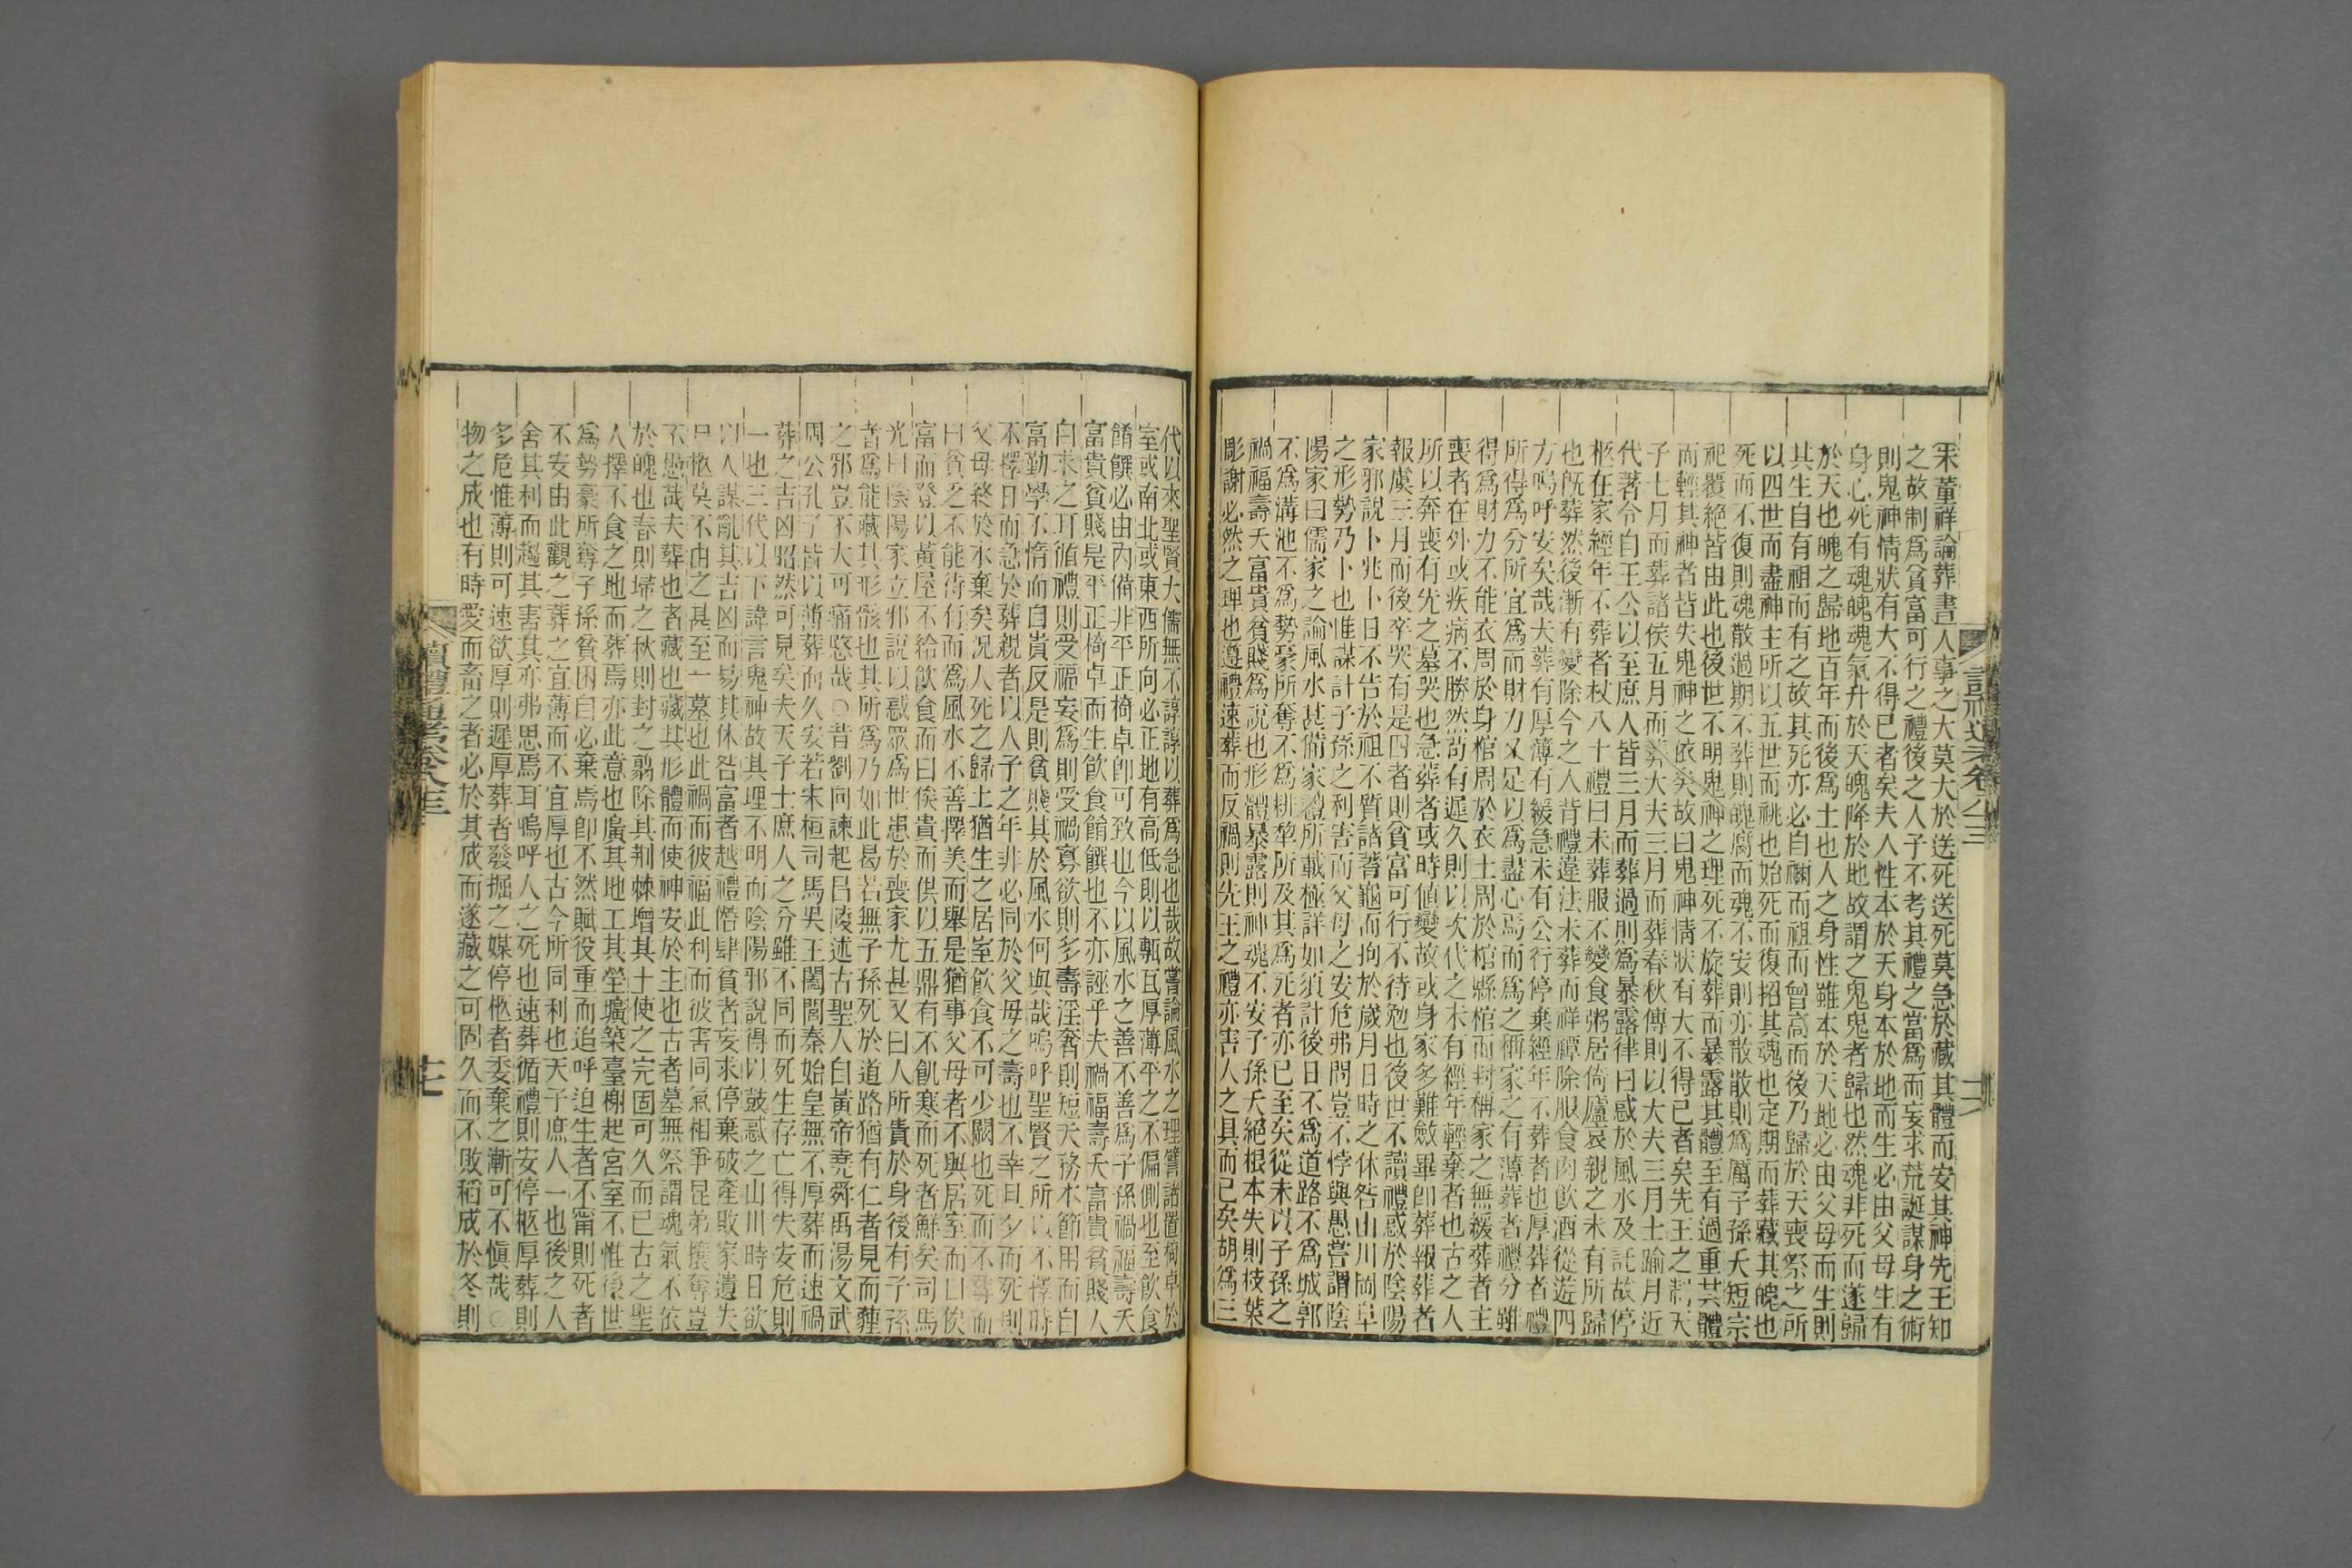 宋董祥論葬書人事之大莫大於送死送死莫急於藏其體而安其神先王知
之故制為貧富可行之禮後之人子不考其禮之當為而妄求荒誕謀身之術
則鬼神情狀有大不得已者矣夫人性本於天身本於地而生必由父母生有
身心死有魂魄魂氣升於天魄降於地故謂之鬼鬼者歸也然魂非死而遂歸
於天也魄之歸地百年而後為土也人之身性雖本於天地必由父母而生則
其生自有祖而有之故其死亦必自禰而祖而曾高而後乃歸於天喪祭之所
以四世而盡神主所以五世而祧也始死而復招其魂也定期而葬藏其魄也
死而不復則魂散過期不葬則魄腐而魂不安則亦散散則為厲子孫夭短宗
祀覆絕皆由此也後世不明鬼神之理死不旋葬而暴露其體至有過重其體
而輕其神者皆失鬼神之依矣故曰鬼神情狀有大不得已者矣先王之制天
子七月而葬諸侯五月而葬大夫三月而葬春秋傳則以大夫三月士踰月近
代著令自王公以至庶人皆三月而葬過則為暴露律曰惑於風水及託故停
柩在家經年不葬者杖八十禮曰未葬服不變食粥居倚廬哀親之未有所歸
也既葬然後漸有變除今之人背禮違法未葬而祥禫除服食肉飲酒從遊四
方嗚呼安矣哉夫葬有厚薄有緩急未有公行停棄經年不葬者也厚葬者禮
所得為分所宜為而財力又足以為盡心焉而為之稱家之有薄葬者禮分雖
得為財力不能衣周於身棺周於衣土周於棺縣棺而封稱家之無緩葬者主
喪者在外或疾病不勝然苟有遲久則以次代之未有經年輕棄者也古之人
所以奔喪有先之墓哭也急葬者或時值變故或身家多難斂畢即葬報葬者
報虞三月而後卒哭有是四者則貧富可行不待勉也後世不讀禮惑於陰陽
家邪說卜兆卜日不告於祖不質諸蓍龜而拘於歲月日時之休咎山川岡阜
之形勢乃卜也惟謀計子孫之利害而父母之安危弗問豈不悖與愚嘗謂陰
陽家曰儒家之論風水甚備家禮所載極詳如須計後日不為道路不為城郭
不為溝池不為勢豪所奪不為耕犂所及其為死者亦已至矣從未以子孫之
禍福壽夭富貴貧賤為說也形體暴露則神魂不安子孫夭絕根本失則枝葉
彫謝必然之理也遵禮速葬而反禍則先王之禮亦害人之具而已矣胡為三
代以來聖賢大儒無不諄諄以葬為急也哉故嘗論風水之理譬諸置椅卓於
室或南北或東西所向必正地有高低則以甎瓦厚薄平之不偏側也至飲食
餚饌必由內備非平正椅卓即可致也今以風水之善不善為子孫禍福壽夭
富貴貧賤是平正椅卓而生飲食餚饌也不亦誣乎夫禍福壽夭富貴貧賤人
自求之耳循禮則受福妄為則受禍寡欲則多壽淫奢則短夭務本節用而自
富勤學不惰而自貴反是則貧賤其於風水何與哉嗚呼聖賢之所以不擇時
不擇日而急於葬親者以人子之年非必同於父母之壽也不幸旦夕而死則
父母終於水棄矣況人死之歸土猶生之居室飲食不可少闕也死而不葬而
曰貧乏不能待有而為風水不善擇美而舉是猶事父母者不與居室而曰俟
富而登以黃屋不給飲食而曰俟貴而供以五鼎有不飢寒而死者鮮矣司馬
光曰陰陽家立邪說以惑眾為世患於喪家尤甚又曰人所貴於身後有子孫
者為能藏其形骸也其所為乃如此曷若無子孫死於道路猶有仁者見而薶
之邪豈不大可痛愍哉○昔劉向諫起昌陵述古聖人自黃帝堯舜禹湯文武
周公孔子皆以薄葬而久安若宋桓司馬吳王闔閭秦始皇無不厚葬而速禍
葬之吉凶昭然可見矣夫天子士庶人之分雖不同而死生存亡得失安危則
一也三代以下諱言鬼神故其理不明而陰陽邪說得以鼓惑之山川時日欲
以人謀亂其吉凶而易其休咎富者越禮僭肆貧者妄求停棄破產敗家遺失
尸柩莫不由之甚至一墓也此禍而彼福此利而彼害同氣相爭昆弟攘奪豈
不愚哉夫葬也者藏也藏其形體而使神安於主也古者墓無祭謂魂氣不依
於魄也春則埽之秋則封之翦除其荆棘增其土使之完固可久而已古之聖
人擇不食之地而葬焉亦此意也廣其地工其塋壙築臺榭起宮室不惟後世
為勢豪所奪子孫貧困自必棄焉即不然賦役重而追呼迫生者不甯則死者
不安由此觀之葬之宜薄而不宜厚也古今所同利也天子庶人一也後之人
舍其利而趨其害其亦弗思焉耳嗚呼人之死也速葬循禮則安停柩厚葬則
多危惟薄則可速欲厚則遲厚葬者發掘之媒停柩者委棄之漸可不慎哉○
物之成也有時愛而畜之者必於其成而遂藏之可固久而不敗稻成於冬則
讀禮通考卷八十三
十七